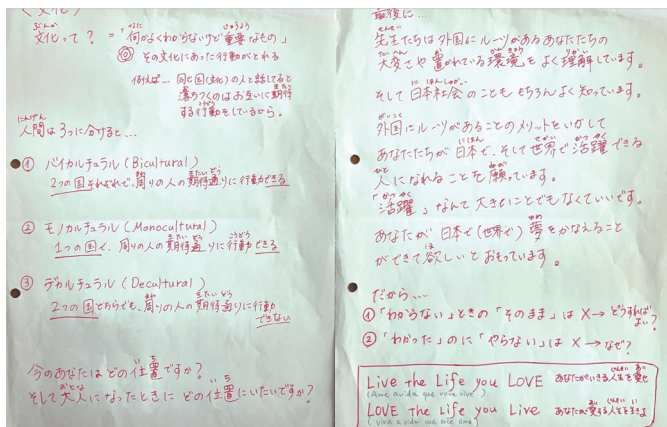 〈文化〉
文化って? = 「何かよくわからないけど重要なもの」
◎ その文化にあった行動がとれる
例えば… 同じ国(文化)の人と話してると
落ちつくのはお互いに期待
する行動をしているから。
人間は3つに分けると…
① バイカルチュラル (Bicultural)
2つの国それぞれで、周りの人の期待通りに行動できる
② モノカルチュラル (Monocultural)
1つの国で、周りの人の期待通りに行動できる
③ デカルチュラル (Decultural)
2つの国どちらでも、周りの人の期待通りに行動
できない
今のあなたはどの位置ですか?
そして大人になったときにどの位置にいたいですか?
最後に…
先生たちは外国にルーツがあるあなたたちの
大変さや置かれている環境をよく理解しています。
そして日本社会のことももちろんよく知っています。
外国にルーツがあることのメリットをいかして
あなたたちが日本で、そして世界で活躍できる
人になれることを願っています。
「活躍」なんて大きなことでもなくていいです。
あなたが日本で(世界で)夢をかなえること
ができて欲しいとおもっています。
だから…
①「わからない」ときの「そのまま」は X→ どうすればよい?
②「わかった」のに「やらない」は X→ なぜ?
Live the Life you LOVE あなたがいきる人生を愛せ
(Ame a vida que você vive)
LOVE the Life you Live あなたが愛する人生を生きよ
(Viva a vida que você ama)